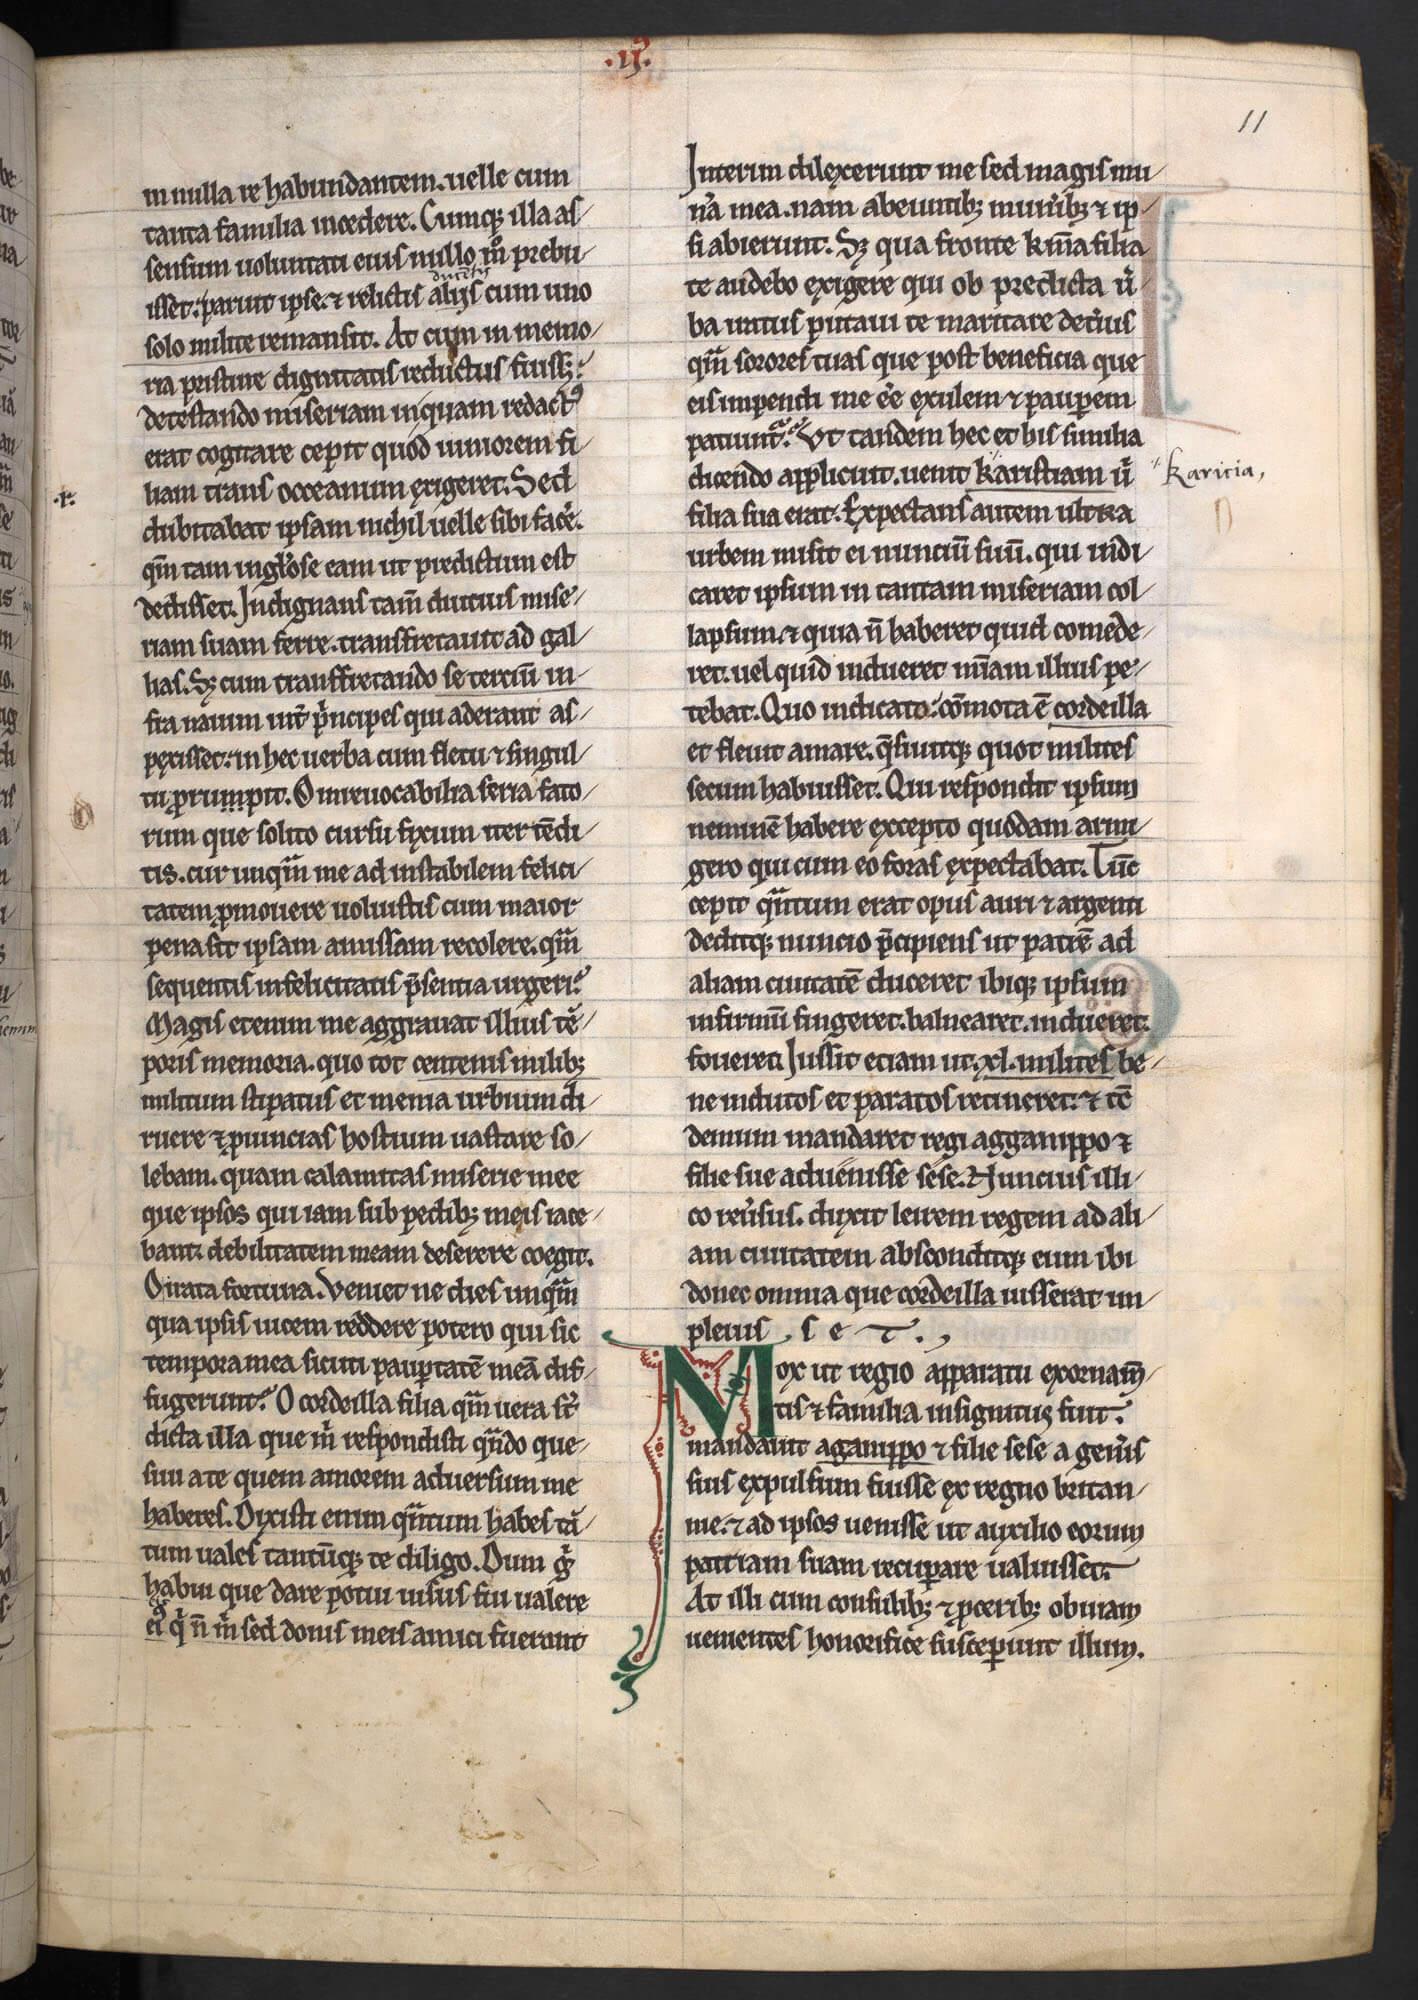 .ii.
11
in nulla re habundantem. uelle cum
tanta familia incedere. Cumq; illa as/
sensum uoluntati eius nullo mͦ prebu/
isset: paruit ipse. ⁊ relictis alijs cum uno
solo milite remansit. At cum in memo/
ria pristine dignitatis reductus fuiss;:
detestando miseriam in quam redactꝰ
erat cogitare cepit quod iuniorem fi/
liam trans occeanum exigeret. Sed
.r.
dubitabat ipsam nichil uelle sibi face̾.
qm̄ tam inglo̾se eam ut predictum est
dedisset. Indignans tam̄ diutius mise/
riam suam ferre. transfretauit ad gal/
lias. S; cum transfretando se terciū in/
fra nauim int̾ p̾ncipes qui aderant as/
pexisset: in hec uerba cum fletu ⁊ singul/
tu ꝓrumpit. O inreuocabilia seria fato/
rum que solito cursu fixum iter tēdi/
tis. cur unqm̄ me ad instabilem felici/
tatem ꝓmouere uoluistis cum maior
pena sit ipsam amissam recolere. qm̄
sequentis infelicitatis p̄sentia urgeri.
Magis etenim me aggrauat illius tē/
poris memoria. quo tot centenis milib;
militum stipatus et menia urbium di/
ruere ⁊ ꝓuincias hostium uastare so/
lebam. quam calamitas miserie mee
que ipsos qui iam sub pedib; meis iace/
bant; debilitatem meam deserere coegit.
O irata fortuna. Veniet ne dies unqm̄
qua ipsis uicem reddere potero qui sic
tempora mea sicuti pauꝑtatē meā dif/
fugerunt. O cordeilla filia qm̄ uera st̾
dicta illa que m̾ respondisti qn̄do que/
siui a te quem amorem aduersum me
haberes. Dixisti enim qn̄tum habes tā/
tum uales tantūq; te diligo. Dum g̾
habui que dare potui uisus fui ualere
ei q̾ n̄ m̾ sed donis meis amici fuerant
Interim dilexerunt me sed magis mu/
n̾a mea. nam abeuntib; mun̾ib; ⁊ ip/
si abierunt. S; qua fronte km̄a filia
te audebo exigere qui ob predicta u̾/
ba iratus putaui te maritare det̾ius
qm̄ sorores tuas que post beneficia que
eis impendi me ee̾ exulem ⁊ pauꝑem
patiunt̾. Vt tandem hec et his similia
dicendo applicuit. uenit karistiam u̾
karitia,
filia sua erat. Expectans autem ultra
urbem misit ei nunciū suū. qui indi/
caret ipsum in tantam miseriam col/
lapsum. ⁊ quia n̄ haberet quid comede/
ret. uel quid indueret mīam illius pe/
tebat. Quo indicato: cōmota ē cordeilla
et fleuit amare. q̄siuitq; quot milites
secum habuisset. Qui respondit ipsum
neminē habere excepto quodam armi/
gero qui cum eo foras expectabat. Tūc
cepit qn̄tum erat opus auri ⁊ argenti
deditq; nuncio p̄cipiens ut patrē ad
aliam ciuitatē duceret ibiq; ipsum
infirmū fingeret. balnearet. indueret.
foueret. Iussit etiam ut .xl. milites be/
ne indutos et paratos retineret: ⁊ tc̄
demum mandaret regi aggamppo ⁊
filie sue aduenisse sese. Nuncius illi/
co reu̾sus. duxit leirem regem ad ali/
am ciuitatem absconditq; eum ibi
donec omnia que cordeilla iusserat im/
pleuis s e t . ,
Mox ut regio apparatu exornam̄/
tis ⁊ familia insignitus fuit:
mandauit agamppo ⁊ filie sese a gen̾is
suis expulsum fuisse ex regno britan/
nie. ⁊ ad ipsos uenisse ut auxilio eorum
patriam suam recuꝑare ualuisset.
At illi cum consulib; ⁊ ꝓcerib; obuiam
uenientes honorifice susceꝑunt illum.